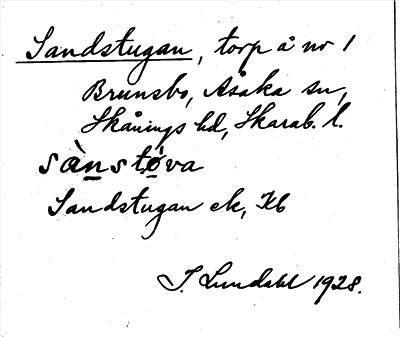 Sandstugan, torp å nr 1
Brunsbo, Åsaka sn,
Skånings hd, Skarab. l.
sànstǿva
Sandstugan ek, Kb
I. Lundahl 1928.